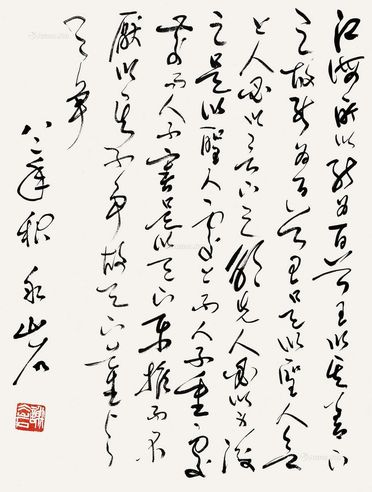 江海所以能為百谷王以其善下
之故能為百谷王是以聖人欲
上人必以言下之欲先人必以身後
之是以聖人處上而人不重處
前而人不害是以天下樂推而不
厭以其不爭故天下莫能與
之爭
八二年秋